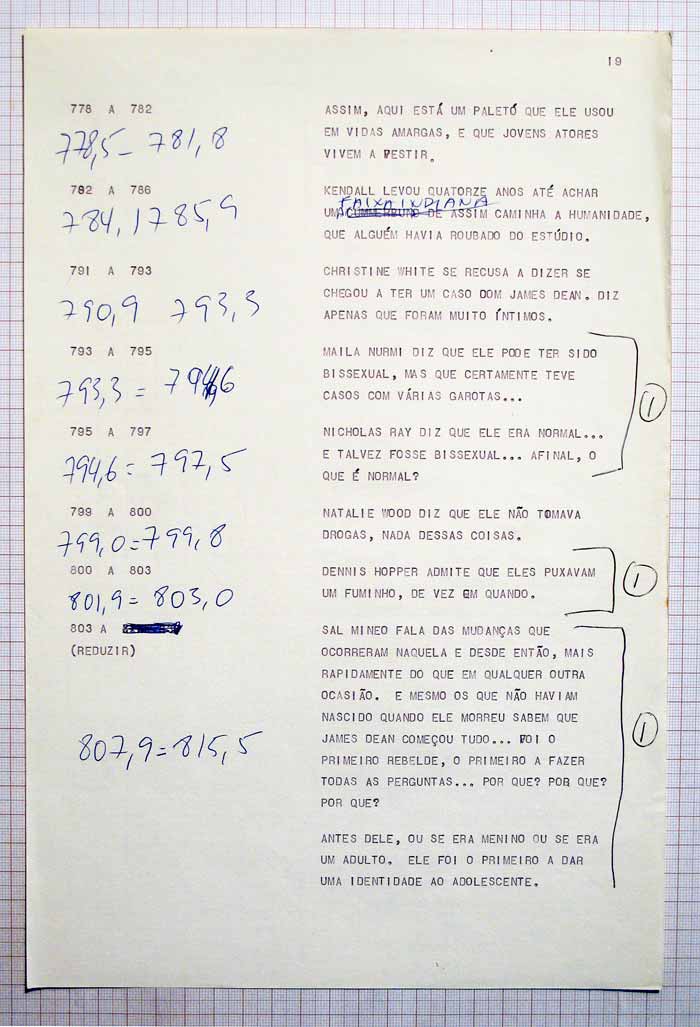 19
778 A 782
778,5 - 781,8
ASSIM, AQUI ESTÁ UM PALETÓ QUE ELE USOU
EM VIDAS AMARGAS, E QUE JOVENS ATORES
VIVEM A VESTIR.
782 A 786
784,1 785,9
KENDALL LEVOU QUATORZE ANOS ATÉ ACHAR
FAIXA INDIANA
UM CUMMERBUND DE ASSIM CAMINHA A HUMANIDADE,
QUE ALGUÉM HAVIA ROUBADO DO ESTÚDIO.
791 A 793
790,9 793,3
CHRISTINE WHITE SE RECUSA A DIZER SE
CHEGOU A TER UM CASO DOM JAMES DEAN. DIZ
APENAS QUE FORAM MUITO ÍNTIMOS.
793 A 795
793,3 = 794,6
MAILA NURMI DIZ QUE ELE PODE TER SIDO
BISSEXUAL, MAS QUE CERTAMENTE TEVE
CASOS COM VÁRIAS GAROTAS...
1
795 A 797
794,6 = 797,5
NICHOLAS RAY DIZ QUE ELE ERA NORMAL...
E TALVEZ FOSSE BISSEXUAL... AFINAL, O
QUE É NORMAL?
799 A 800
799,0 = 799,8
NATALIE WOOD DIZ QUE ELE NÃO TOMAVA
DROGAS, NADA DESSAS COISAS.
800 A 803
801,9 = 803,0
DENNIS HOPPER ADMITE QUE ELES PUXAVAM
UM FUMINHO, DE VEZ EM QUANDO.
1
803 A
(REDUZIR)
807,9 = 815,5
SAL MINEO FALA DAS MUDANÇAS QUE
OCORRERAM NAQUELA E DESDE ENTÃO, MAIS
RAPIDAMENTE DO QUE EM QUALQUER OUTRA
OCASIÃO. E MESMO OS QUE NÃO HAVIAM
NASCIDO QUANDO ELE MORREU SABEM QUE
JAMES DEAN COMEÇOU TUDO... FOI O
PRIMEIRO REBELDE, O PRIMEIRO A FAZER
TODAS AS PERGUNTAS... POR QUE? POR QUE?
POR QUE?
1
ANTES DELE, OU SE ERA MENINO OU SE ERA
UM ADULTO. ELE FOI O PRIMEIRO A DAR
UMA IDENTIDADE AO ADOLESCENTE.